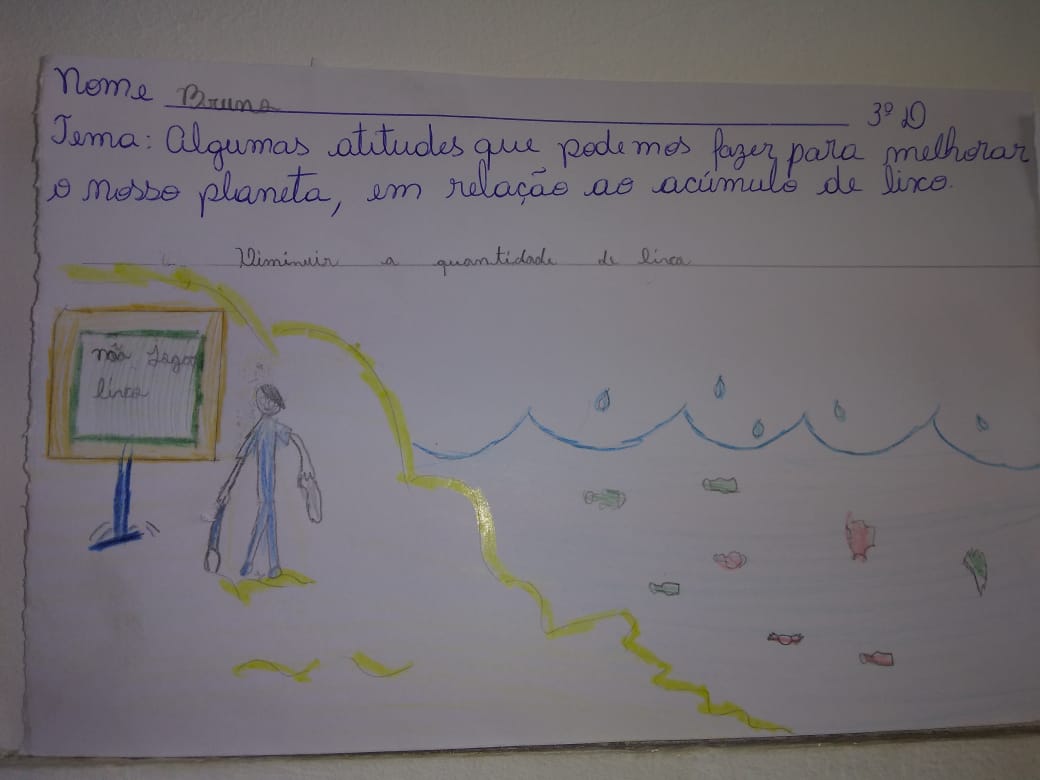 Nome Bruna 3º D
Tema: Algumas atitudes que podemos fazer para melhorar
o nosso planeta, em relação ao acúmulo de lixo.
Diminuir a quantidade de lixo
não jogar
lixo